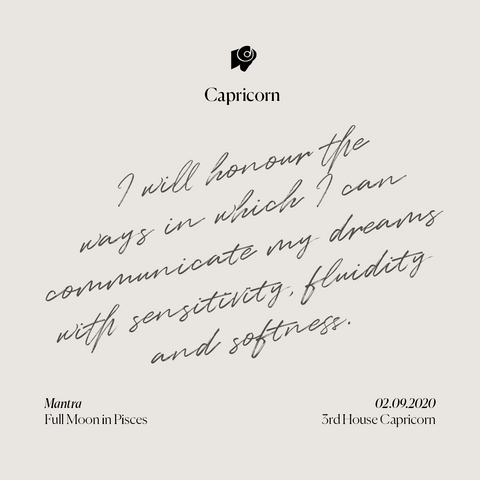 Capricorn
I will honour the
ways in which I can
communicate my dreams
with sensitivity, fluidity
and softness.
Mantra
Full Moon in Pisces
02.09.2020
3rd House Capricorn